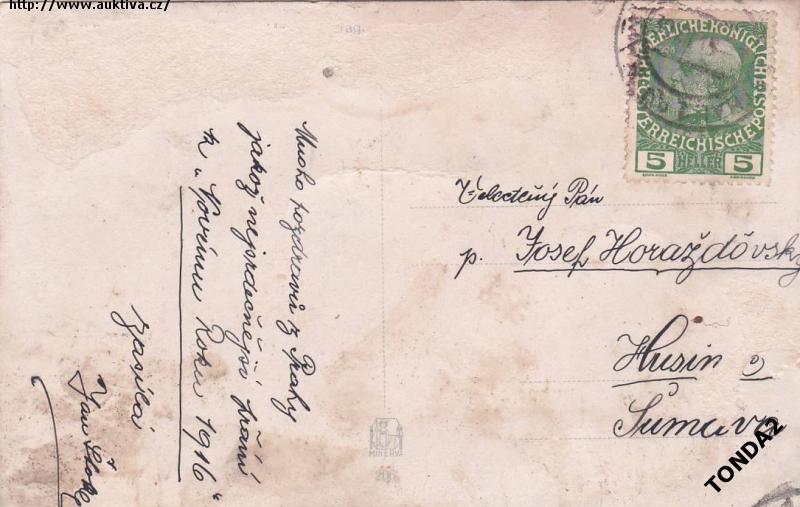 http://www.auktiva.cz/
Mnoho pozdravů z Prahy
jakož nejsrdečnější přání
k „Novému Roku 1916“
zasílá
Jan
KAISERLICHE KÖNIGLICHE
ÖSTERREICHISCHE POST
5 HELLER 5
Velectěný Pán
p. Josef Horažďóvský
Husin
Šumava
MINERVA
TONDA2